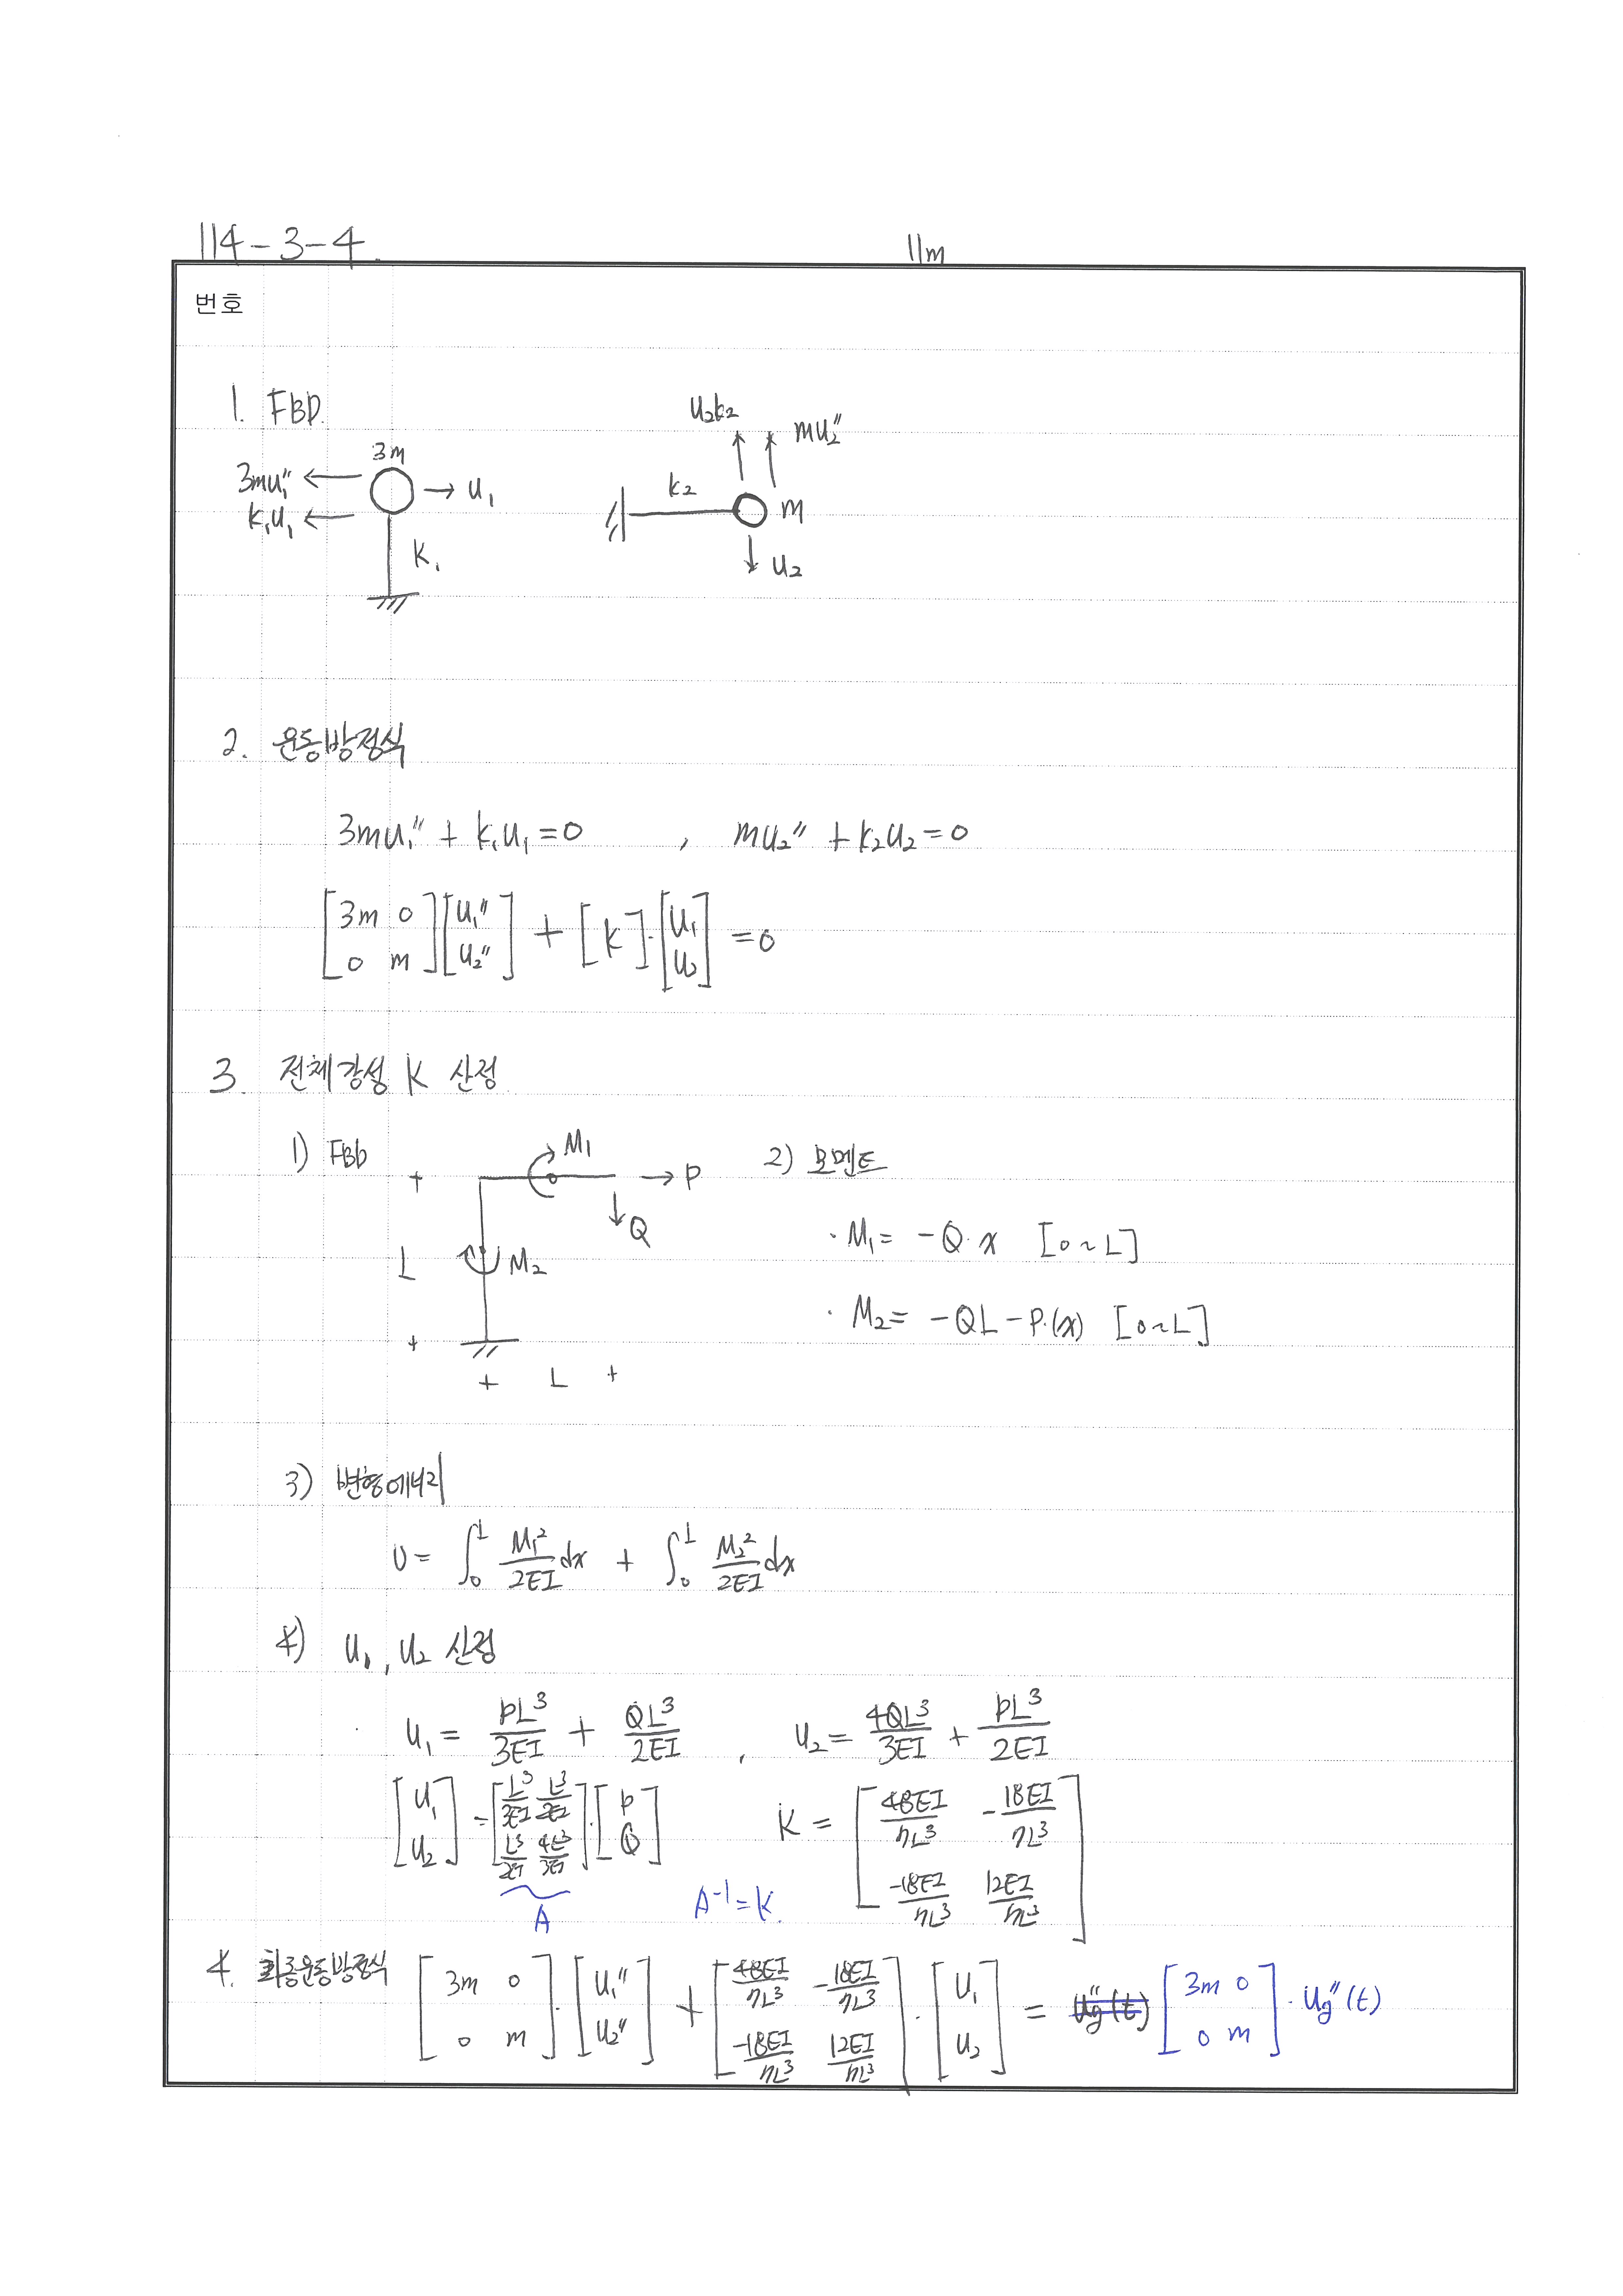 114-3-4.
11m
번호
1. FBD.
3m
3mu₁″ ← → u₁
k₁u₁ ←
k₁
u₂k₂
mu₂″
k₂
m
u₂
2. 운동방정식
3mu₁″ + k₁u₁ = 0 , mu₂″ + k₂u₂ = 0
[3m 0; 0 m][u₁″; u₂″] + [K]·[u₁; u₂] = 0
3. 전체강성 K 산정
1) FBD
M₁
P
Q
M₂
L
L
2) 모멘트
· M₁ = -Q·x [0~L]
· M₂ = -QL - P·(x) [0~L]
3) 변형에너지
U = ∫₀ᴸ M₁²/2EI dx + ∫₀ᴸ M₂²/2EI dx
4) u₁, u₂ 산정
· u₁ = PL³/3EI + QL³/2EI , u₂ = 4QL³/3EI + PL³/2EI
[u₁; u₂] = [L³/3EI L³/2EI; L³/2EI 4L³/3EI]·[P; Q] K = [48EI/7L³ -18EI/7L³; -18EI/7L³ 12EI/7L³]
A A⁻¹ = K.
4. 최종운동방정식 [3m 0; 0 m]·[u₁″; u₂″] + [48EI/7L³ -18EI/7L³; -18EI/7L³ 12EI/7L³]·[u₁; u₂] = [3m 0; 0 m]·ug″(t)